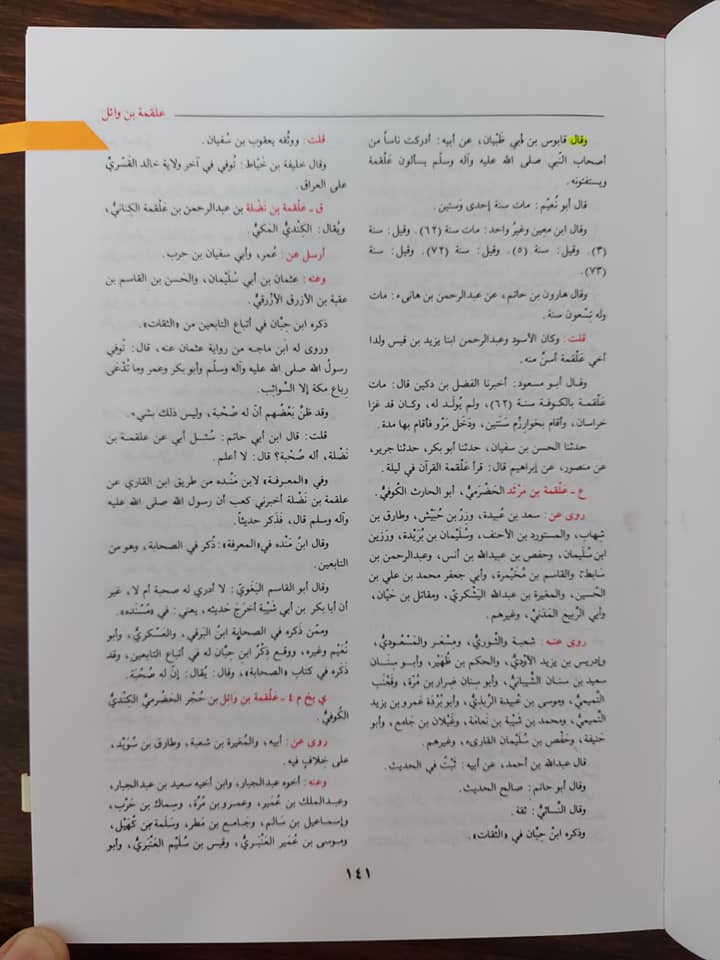 علقمة بن وائل
وقال قابوس بن أبي ظَبْيان، عن أبيه: أدركت ناساً من
أصحاب النَّبي صلى الله عليه وآله وسلّم يسألون عَلْقمة
ويستفتونه.
قال أبو نُعيْم: مات سنة إحدى وستين.
وقال ابن مَعِين وغيرُ واحد: مات سنة (٦٢). وقيل: سنة
(٣). وقيل: سنة (٥). وقيل: سنة (٧٢). وقيل: سنة
(٧٣).
وقال هارون بن حاتم، عن عبدالرحمن بن هانىء: مات
وله تِسْعون سنة.
قلت: وكان الأسود وعبدالرحمن ابنا يزيد بن قيس ولدا
أخي عَلْقمة أسنُّ منه.
وقال أبو مسعود: أخبرنا الفضل بن دكين قال: مات
عَلْقمة بالكوفة سنة (٦٢)، ولم يُولَد له، وكان قد غزا
خراسان، وأقام بخوارِزْم سنتين، ودَخَل مَرْو فأقام بها مدة.
حدثنا الحسن بن سفيان، حدثنا أبو بكر، حدثنا جرير،
عن منصور، عن إبراهيم قال: قرأ عَلْقمة القرآن في ليلة.
ع ـ عَلْقمة بن مَرْثد الحَضْرميُّ، أبو الحارث الكُوفيُّ.
روى عن: سعد بن عُبيدة، وزِرّ بن حُبَيْش، وطارق بن
شهاب، والمستورد بن الأحنف، وسُلَيْمان بن بُرَيْدة، ورَزِين
ابن سُليمان، وحفص بن عبيدالله بن أنس، وعبدالرحمن بن
سابط، والقاسم بن مُخَيْمرة، وأبي جعفر محمد بن علي بن
الحُسين، والمغيرة بن عبدالله اليَشْكري، ومقاتل بن حَيَّان،
وأبي الرَّبيع المَدَنيِّ، وغيرهم.
روى عنه: شعبة والثَّوريُّ، ومِسْعَر والمَسْعُوديُّ،
وإدريس بن يزيد الأوديُّ، والحكم بن ظُهَيْر، وأبو سِنان
سعيد بن سنان الشَّيبانيُّ، وأبو سِنان ضِرار بن مُرَّة، وقَعْنَب
التَّميميُّ، وموسى بن عُبيدة الرَّبذيُّ، وأبو بُرْدَة عَمرو بن يزيد
التَّميميُّ، ومحمد بن شَيْبة بن نعامَة، وغَيْلان بن جامع، وأبو
حنيفة، وحَفْص بن سُليمان القارىء، وغيرهم.
قال عبدالله بن أحمد، عن أبيه: ثَبْتٌ في الحديث.
وقال أبو حاتم: صالح الحديث.
وقال النَّسائيُّ: ثقة.
وذكره ابنُ حِبَّان في «الثِّقات».
قلت: ووثَّقه يعقوب بن سُفيان.
وقال خليفة بن خَيّاط: تُوفي في آخر ولاية خالد القَسْريِّ
على العراق.
ق ـ عَلْقمة بن نَضْلة بن عبدالرحمن بن عَلْقمة الكِنانيُّ،
ويُقال: الكِنْديُّ المَكيُّ.
أرسل عن: عُمر، وأبي سفيان بن حرب.
وعنه: عثمان بن أبي سُلَيْمان، والحَسن بن القاسم بن
عقبة بن الأزرق الأزرقيُّ.
ذكره ابن حِبَّان في أتباع التابعين من «الثقات».
وروى له ابن ماجه من رواية عثمان عنه، قال: تُوفي
رسولُ الله صلى الله عليه وآله وسلّم وأبو بكر وعمر وما تُدْعَى
رِباع مكة إلا السوائِب.
وقد ظنَّ بَعْضُهم أنَّ له صُحْبة، وليس ذلك بشيء.
قلت: قال ابن أبي حاتم: سُئل أبي عن علقمة بن
نَضْلة، أله صُحبة؟ قال: لا أعلم.
وفي «المعرفة» لابن مَنْده من طريق ابن القاري عن
علقمة بن نَضْلة أخبرني كعب أن رسول الله صلى الله عليه
وآله وسلم قال، فَذَكر حديثاً.
وقال ابنُ مَنْده في«المعرفة»: ذُكر في الصحابة، وهو من
التابعين.
وقال أبو القاسم البَغَويُّ: لا أدري له صحبة أم لا، غير
أن أبا بكر بن أبي شَيْبة أخرجَ حَديثه، يعني: في «مُسْنَده».
وممّن ذكره في الصحابة ابنُ البَرقي، والعَسْكريُّ، وأبو
نُعيْم وغيره، ووقع ذِكْرُ ابن حِبان له في أتباع التابعين، وقد
ذَكَره في كتاب «الصحابة»، وقال: يُقال: إنَّ له صُحْبَة.
ي بخ م ٤ ـ عَلْقمة بن وائل بن حُجْر الحَضْرميُّ الكِنْديُّ
الكُوفيُّ.
روى عن: أبيه، والمُغيرة بن شعبة، وطارق بن سُوَيْد،
على خِلافٍ فيه.
وعنه: أخوه عبدالجبار، وابن أخيه سعيد بن عبدالجبار،
وعبدالملك بن عُمَير، وعمرو بن مُرَّة، وسِماك بن حَرْب،
وإسماعيل بن سَالم، وجَامع بن مَطر، وسَلمة بن كُهَيْل،
وموسى بن عُمَير العَنْبَريُّ، وقيس بن سُلَيْم العَنْبَريُّ، وأبو
١٤١